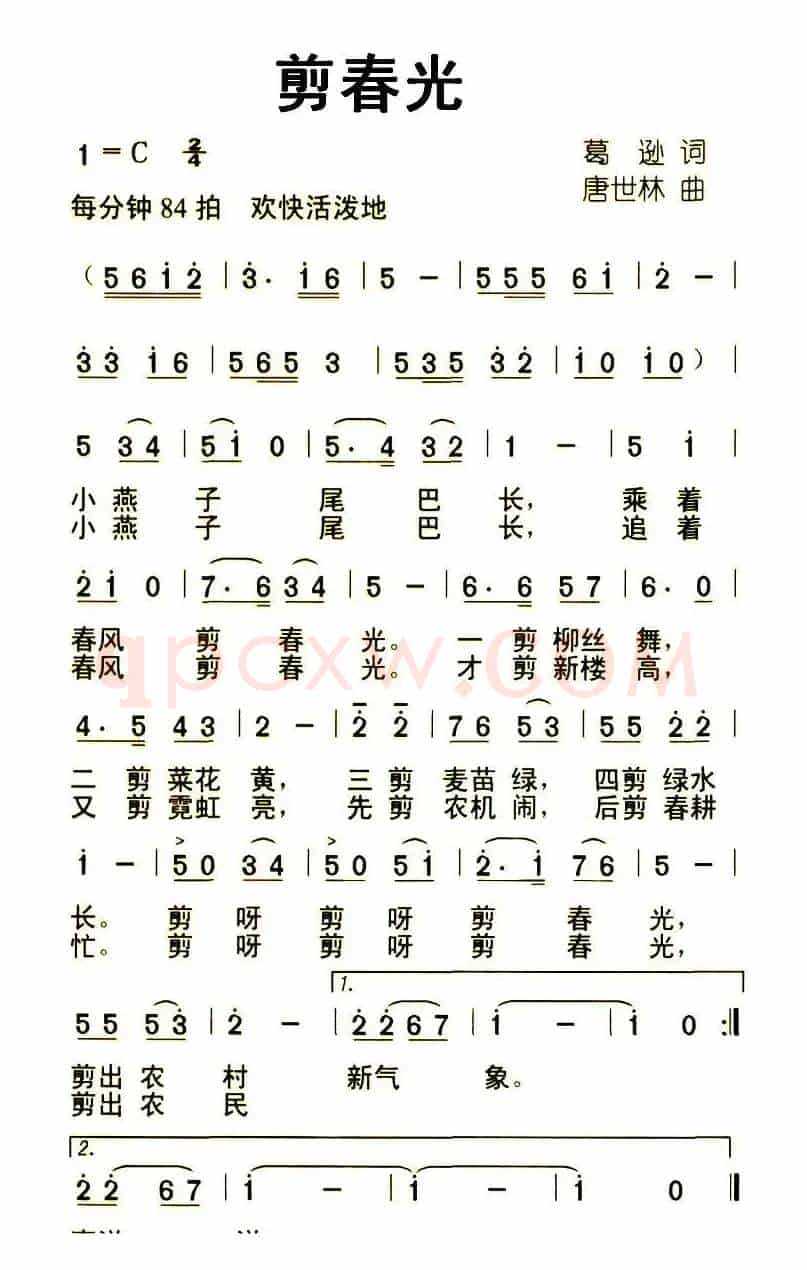 剪春光
1=C 2/4
葛逊 词
每分钟84拍 欢快活泼地
唐世林 曲
（5 6 i̇ 2̇ | 3̇· i̇ 6 | 5 － | 5 5 5 6 i̇ | 2̇ － |
3̇ 3̇ i̇ 6 | 5 6 5 3 | 5 3 5 3̇ 2̇ | i̇ 0 i̇ 0）|
5 3 4 | 5 i̇ 0 | 5· 4 3 2 | 1 － | 5 i̇ |
小燕 子 尾 巴 长， 乘 着
小燕 子 尾 巴 长， 追 着
2̇ i̇ 0 | 7· 6 3 4 | 5 － | 6· 6 5 7 | 6· 0 |
春风 剪 春 光。 一 剪 柳丝 舞，
春风 剪 春 光。 才 剪 新楼 高，
qpcxw.COM
4· 5 4 3 | 2 － | 2̇ 2̇ | 7 6 5 3 | 5 5 2̇ 2̇ |
二 剪 菜花 黄， 三 剪 麦苗 绿， 四剪 绿水
又 剪 霓虹 亮， 先 剪 农机 闹， 后剪 春耕
i̇ － | 5 0 3 4 | 5 0 5 i̇ | 2̇· i̇ 7 6 | 5 － |
长。 剪 呀 剪 呀 剪 春 光，
忙。 剪 呀 剪 呀 剪 春 光，
1.
5 5 5 3̇ | 2̇ － | 2̇ 2̇ 6 7 | i̇ － | i̇ 0 :‖
剪出 农 村 新气 象。
剪出 农 民
2.
2̇ 2̇ 6 7 | i̇ － | i̇ － | i̇ 0 ‖